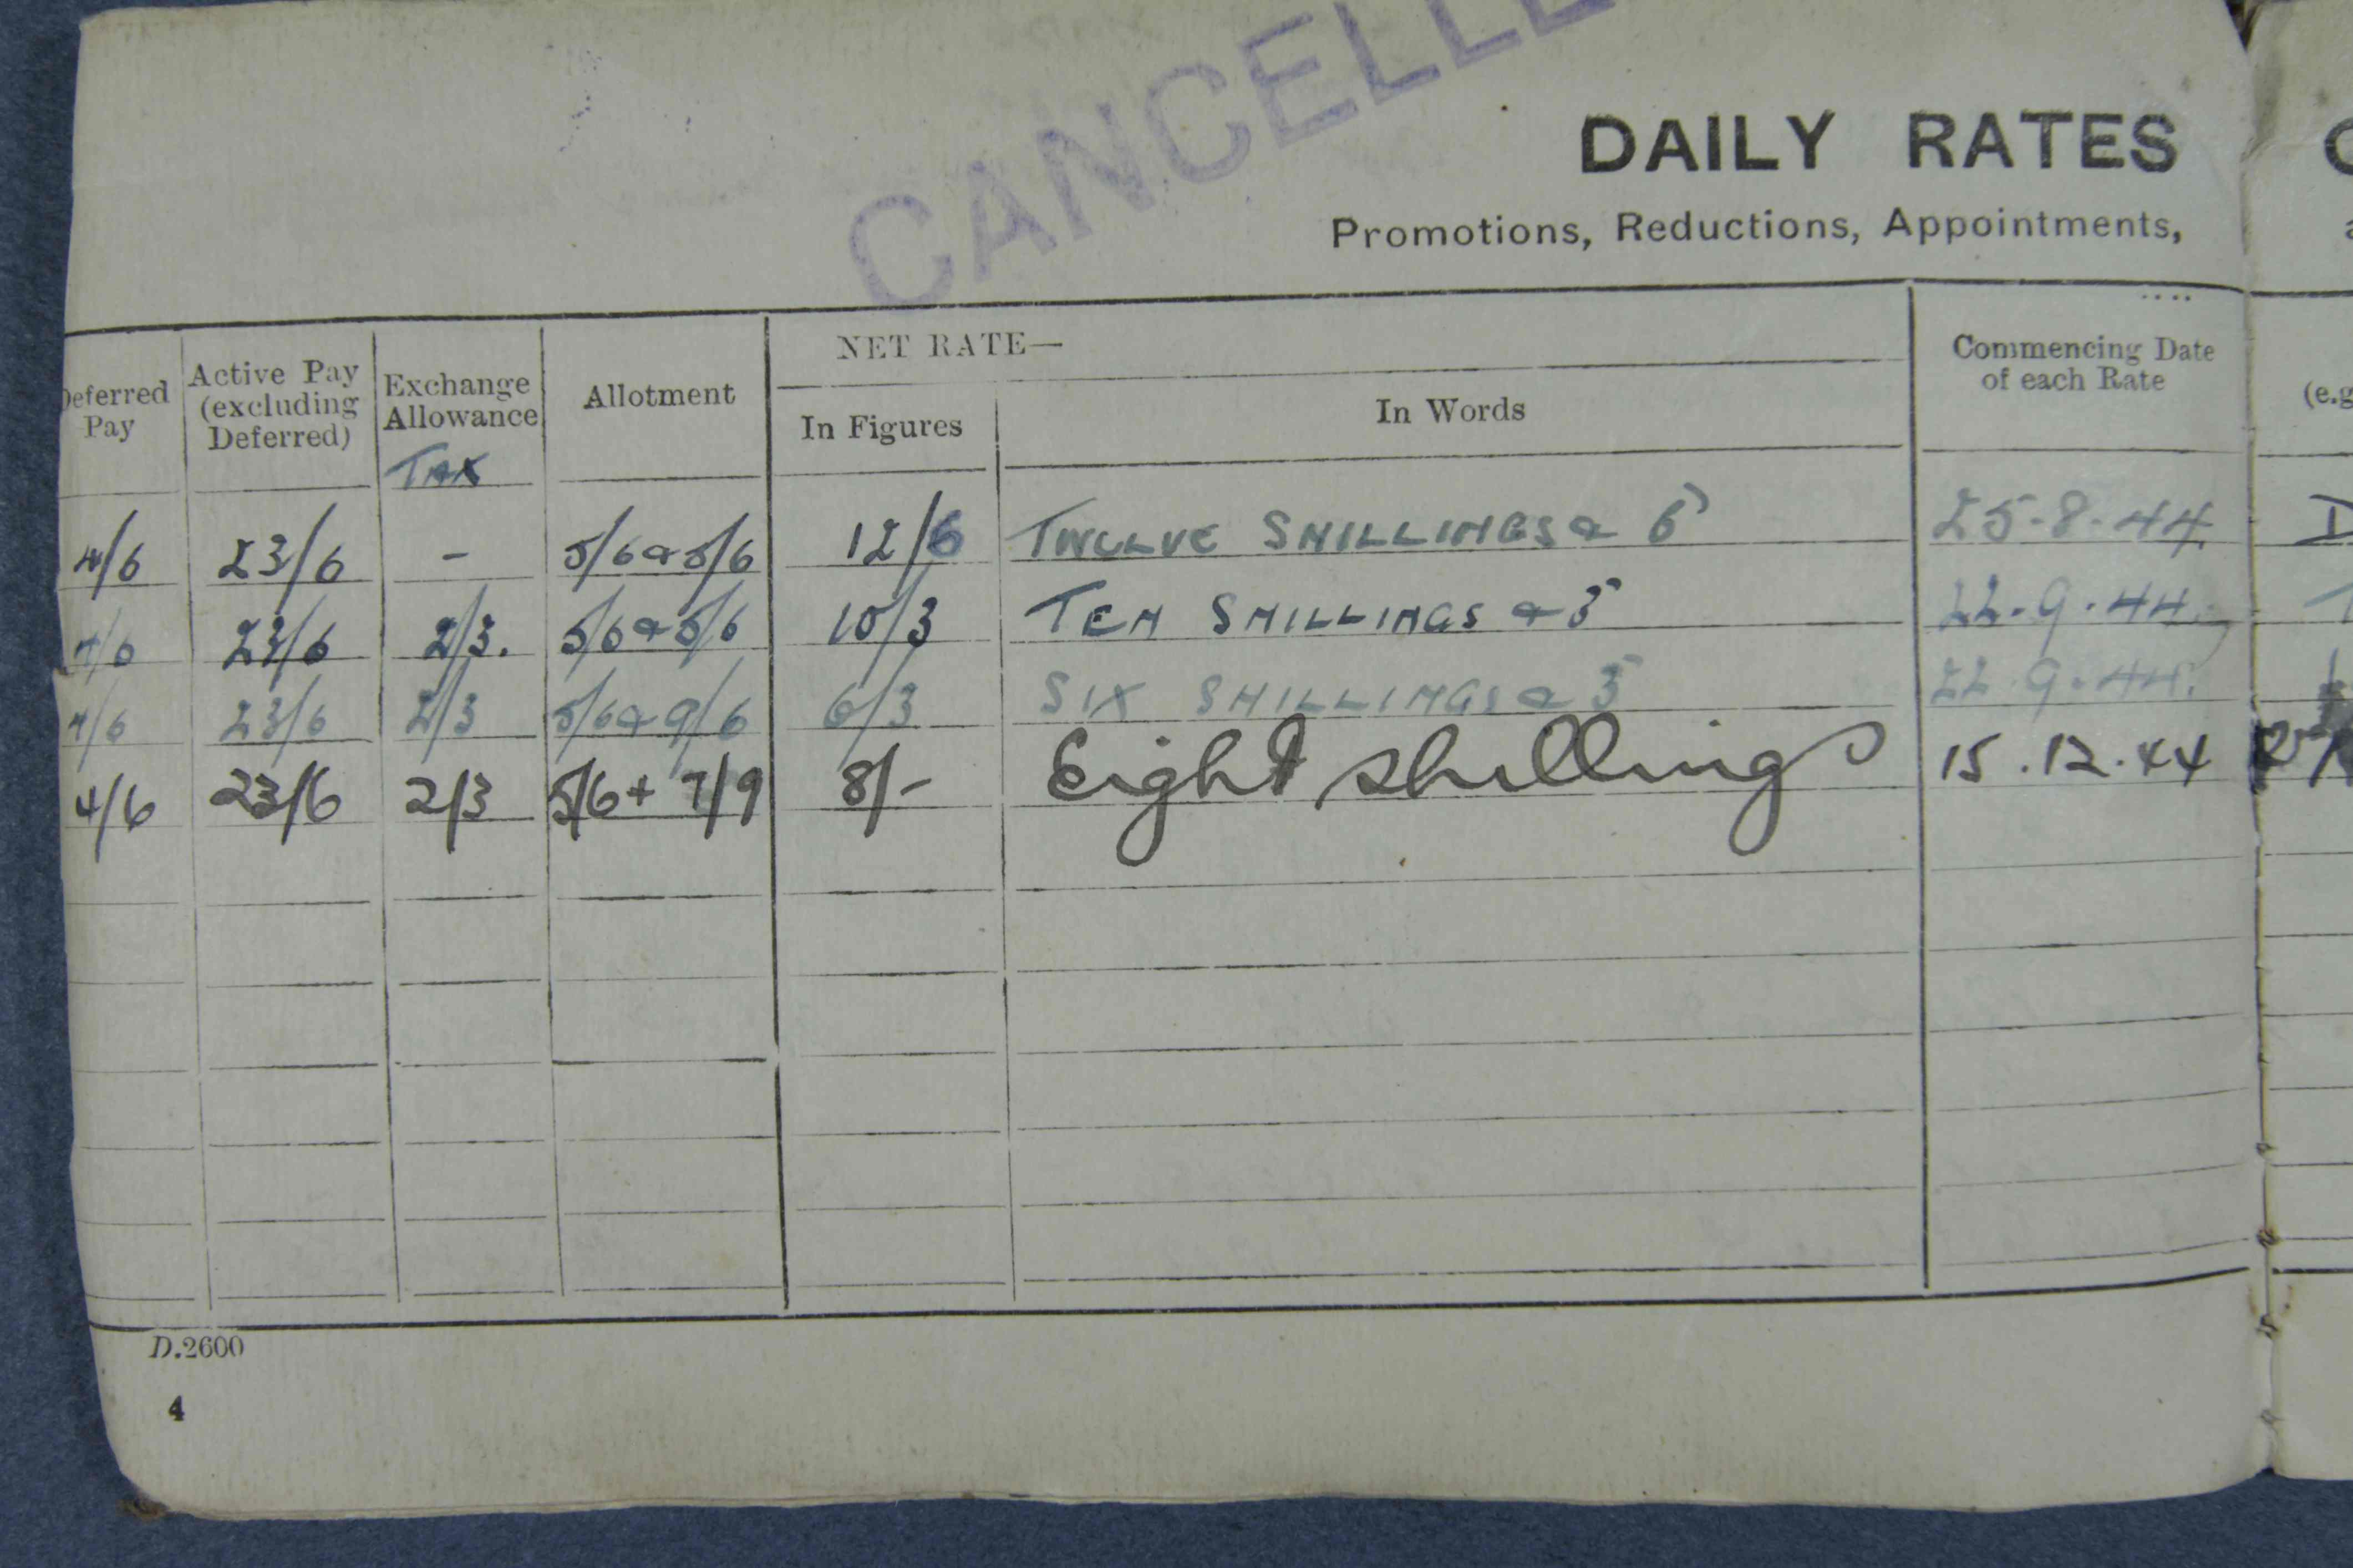 CANCELLE
DAILY RATES
Promotions, Reductions, Appointments,
Deferred Pay
Active Pay (excluding Deferred)
Exchange Allowance
TAX
Allotment
NET RATE—
In Figures
In Words
Commencing Date of each Rate
(e.g
4/6 23/6 - 5/6 & 5/6 12/6 TWELVE SHILLINGS & 6 25.8.44
4/6 23/6 2/3. 5/6 & 5/6 10/3 TEN SHILLINGS & 3 22.9.44.
4/6 23/6 2/3 5/6 & 9/6 6/3 SIX SHILLINGS & 3 22.9.44.
4/6 23/6 2/3 5/6 + 7/9 8/- Eight shillings 15.12.44
D.2600
4